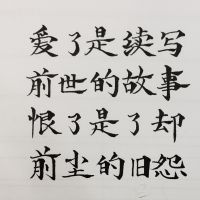 爱了是续写
前世的故事
恨了是了却
前尘的旧怨